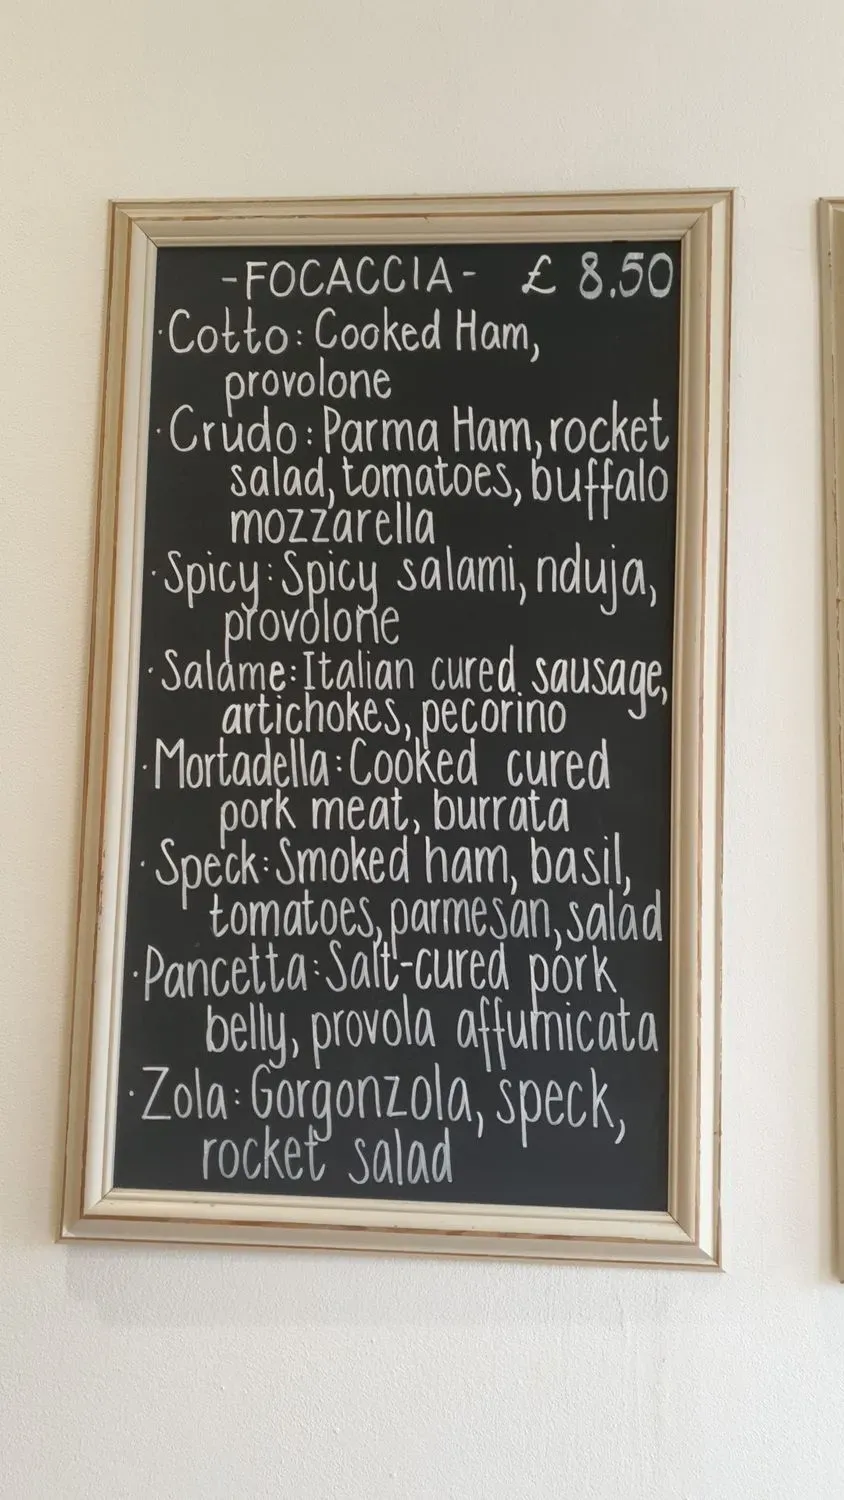 -FOCACCIA- £ 8.50
·Cotto: Cooked Ham,
provolone
·Crudo: Parma Ham, rocket
salad, tomatoes, buffalo
mozzarella
·Spicy: Spicy salami, nduja,
provolone
·Salame: Italian cured sausage,
artichokes, pecorino
·Mortadella: Cooked cured
pork meat, burrata
·Speck: Smoked ham, basil,
tomatoes, parmesan, salad
·Pancetta: Salt-cured pork
belly, provola affumicata
·Zola: Gorgonzola, speck,
rocket salad